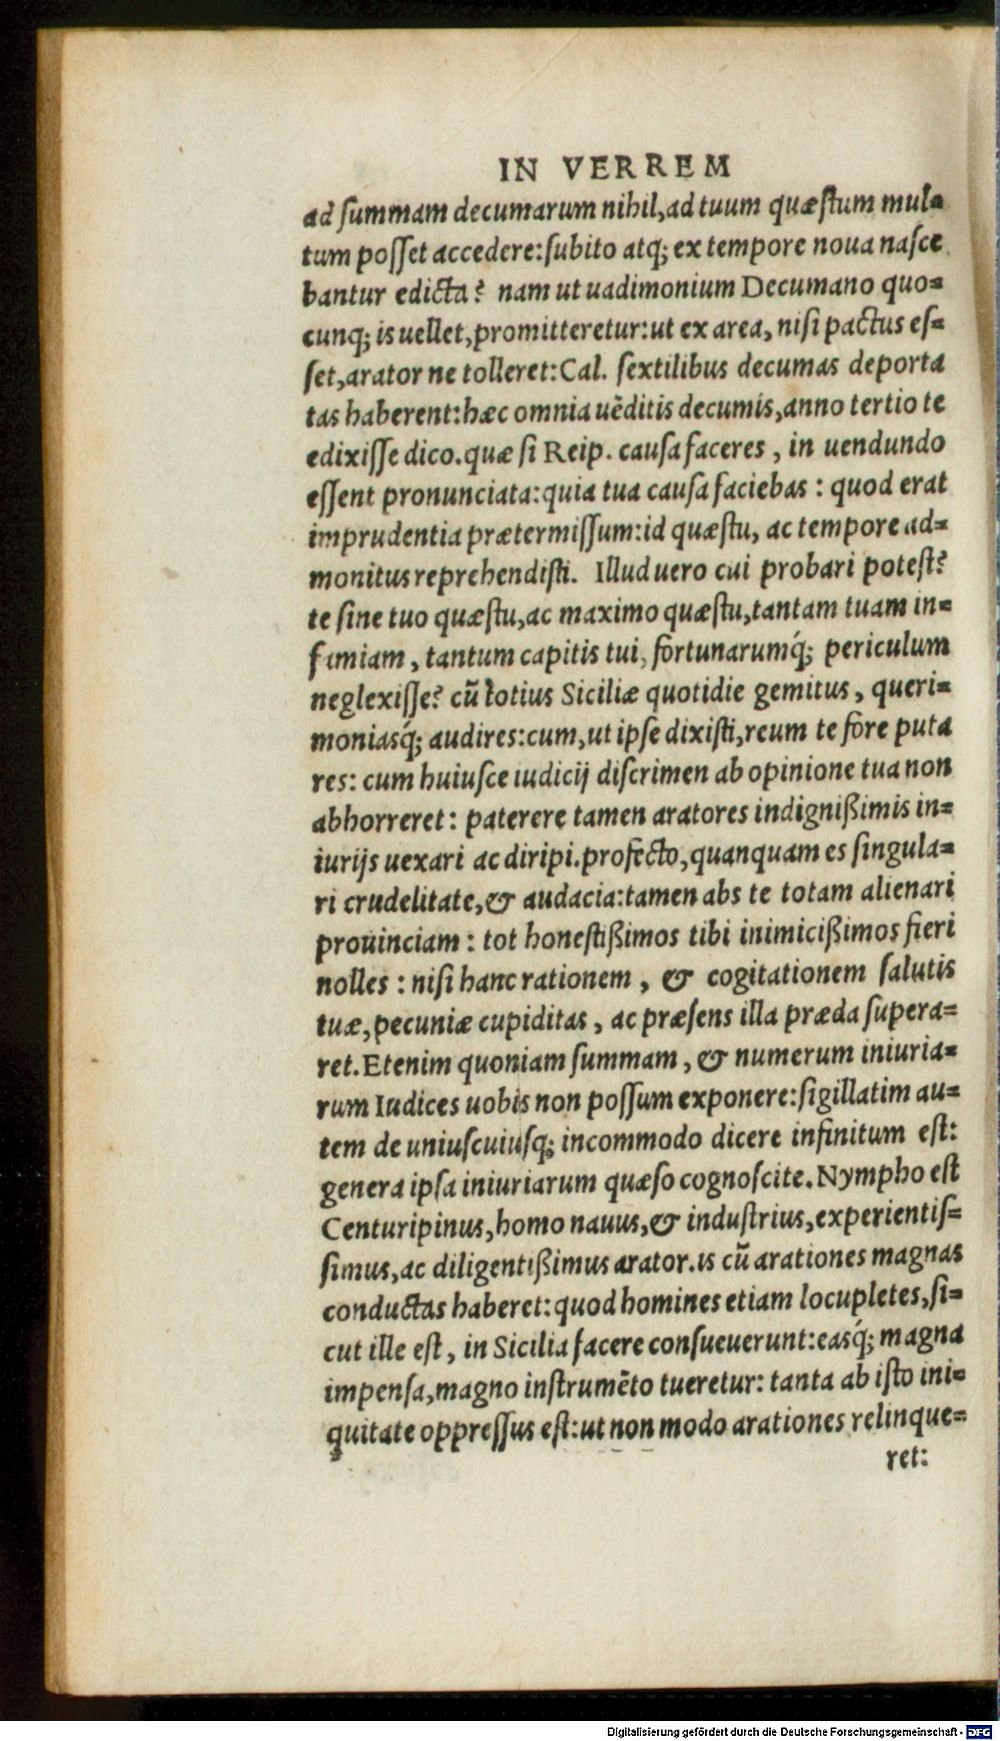 IN VERREM
ad ſummam decumarum nihil,ad tuum quæſtum mul=
tum poſſet accedere:ſubito atq; ex tempore noua naſce
bantur edicta? nam ut uadimonium Decumano quo=
cunq; is uellet,promitteretur:ut ex area, niſi pactus eſ=
ſet,arator ne tolleret:Cal. ſextilibus decumas deporta
tas haberent:hæc omnia uēditis decumis,anno tertio te
edixiſſe dico.quæ ſi Reip. cauſa faceres , in uendundo
eſſent pronunciata:quia tua cauſa faciebas : quod erat
imprudentia prætermiſſum:id quæſtu, ac tempore ad=
monitus reprehendiſti. Illud uero cui probari poteſt?
te ſine tuo quæſtu,ac maximo quæſtu,tantam tuam in=
famiam , tantum capitis tui, fortunarumq́; periculum
neglexiſſe? cū totius Siciliæ quotidie gemitus , queri=
moniasq́; audires:cum,ut ipſe dixiſti,reum te fore puta
res: cum huiuſce iudicij diſcrimen ab opinione tua non
abhorreret : paterere tamen aratores indignißimis in=
iurijs uexari ac diripi.profecto,quanquam es ſingula=
ri crudelitate,& audacia:tamen abs te totam alienari
prouinciam : tot honeſtißimos tibi inimicißimos fieri
nolles : niſi hanc rationem , & cogitationem ſalutis
tuæ,pecuniæ cupiditas , ac præſens illa præda ſupera=
ret.Etenim quoniam ſummam , & numerum iniuria=
rum Iudices uobis non poſſum exponere:ſigillatim au=
tem de uniuſcuiuſq; incommodo dicere infinitum eſt:
genera ipſa iniuriarum quæſo cognoſcite.Nympho eſt
Centuripinus,homo nauus,& induſtrius,experientiſ=
ſimus,ac diligentißimus arator.is cū arationes magnas
conductas haberet:quod homines etiam locupletes,ſi=
cut ille eſt , in Sicilia facere conſueuerunt:easq́; magna
impenſa,magno inſtrumēto tueretur: tanta ab iſto ini=
quitate oppreſſus eſt:ut non modo arationes relinque=
ret:
Digitalisierung gefördert durch die Deutsche Forschungsgemeinschaft - DFG